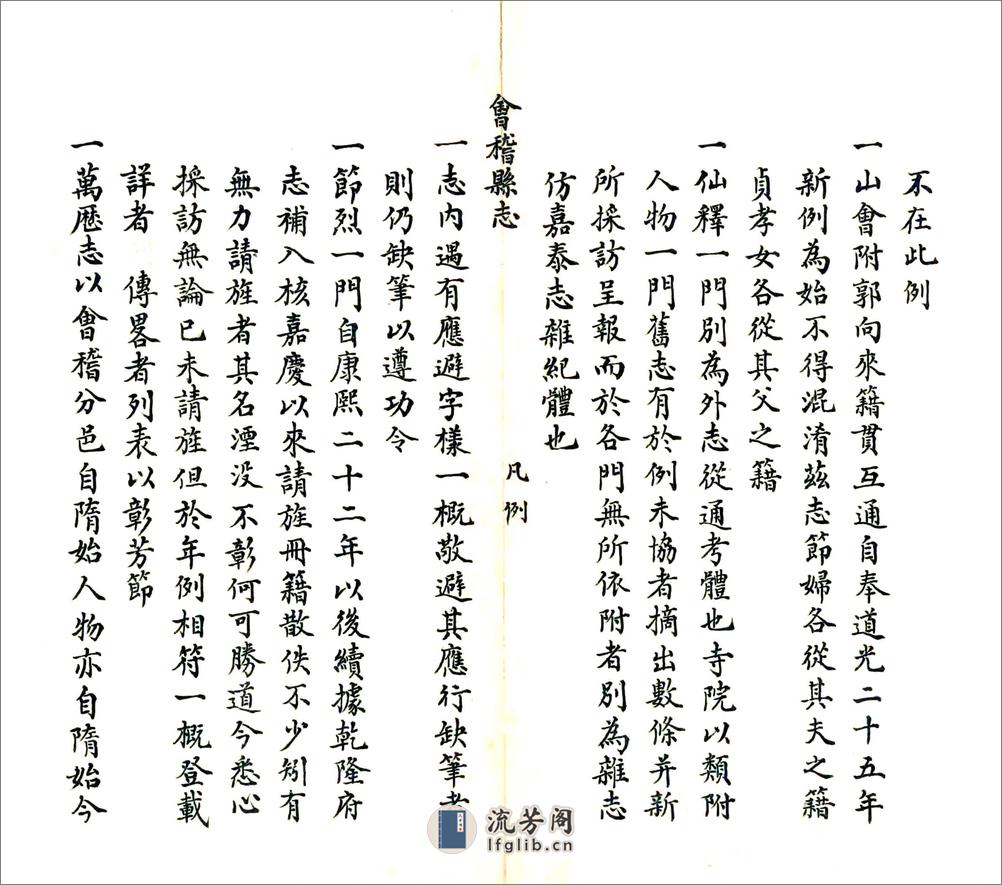 不在此例
一山會附郭向來籍貫互通自奉道光二十五年
新例為始不得混淆茲志節婦各從其夫之籍
貞孝女各從其父之籍
一仙釋一門別為外志從通考體也寺院以類附
人物一門舊志有於例未協者摘出數條并新
所採訪呈報而於各門無所依附者別為雜志
仿嘉泰志雜紀體也
會稽縣志
凡例
一志內遇有應避字樣一概敬避其應行缺筆者
則仍缺筆以遵功令
一節烈一門自康熙二十二年以後續據乾隆府
志補入核嘉慶以來請旌冊籍散佚不少矧有
無力請旌者其名湮没不彰何可勝道今悉心
採訪無論已未請旌但於年例相符一概登載
詳者 傳畧者列表以彰芳節
一萬歷志以會稽分邑自隋始人物亦自隋始今
流芳阁
lfglib.cn